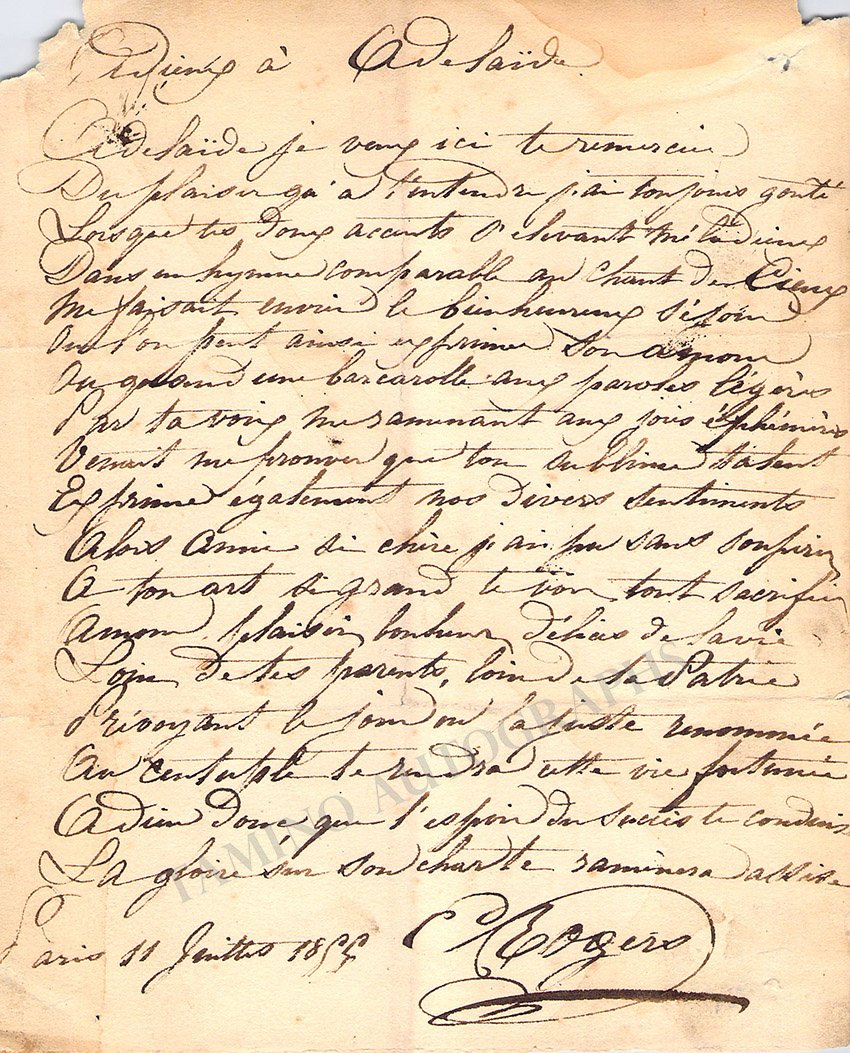 Adieux à Adelaïde
Adelaïde je veux ici te remercier
Du plaisir qu'a t'entendre j'ai toujours gouté
Lorsque tes doux accents s'elevant mélodieux
Dans un hymne comparable au chant des Cieux
Me faisait envier le bienheureux séjour
Ou l'on peut ainsi exprimer son amour
Ou quand une barcarolle aux paroles légères
Par ta voix me ramenant aux jois éphémères
Venait me prouver que ton sublime talent
Exprime également nos divers sentiments
Alors Amie si chère j'ai pu sans soupirer
A ton art si grand te voir tout sacrifier
Amour, plaisir, bonheur, délices de la vie
Loin de tes parents, loin de ta Patrie
Prévoyant le jour ou ta juste renommée
Au centuple te rendra cette vie fortunée
Adieu donc que l'espoir du succès te conduise
La gloire sur son char te raminera assise
Paris 11 Juillet 1855
Rogers
TAMINO AUTOGRAPHS